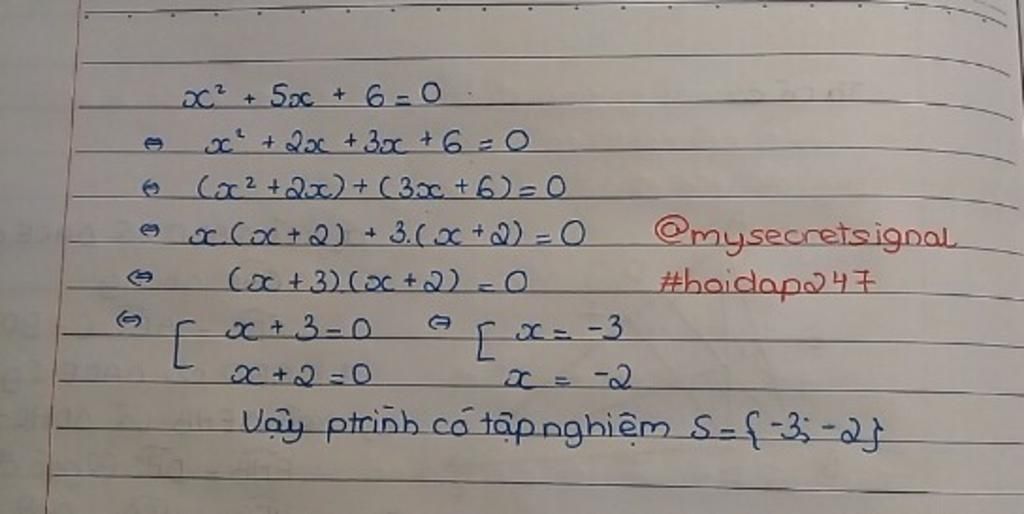 x² + 5x + 6 = 0
⇔ x² + 2x + 3x + 6 = 0
⇔ (x² + 2x) + (3x + 6) = 0
⇔ x.(x + 2) + 3.(x + 2) = 0 @mysecretsignal
⇔ (x + 3).(x + 2) = 0 #hoidap247
⇔ [ x + 3 = 0 ⇔ [ x = -3
x + 2 = 0 x = -2
Vậy ptrình có tập nghiệm S = {-3; -2}